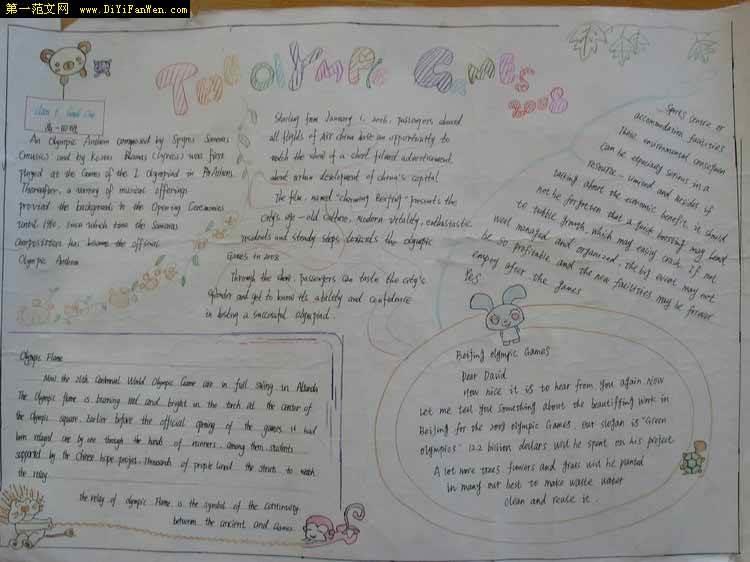 第一范文网
www.DiYiFanWen.com
The olympic Games
2008
高一四班
An Olympic Anthem composed by Spyros Samaras
(music) and by Kostis Palamas (lyrics) was first
played at the Games of the I Olympiad in
Thereafter, a variety of musical offerings
provided the backgrounds to the Opening Ceremonies
until 1960, since which time the Samaras
composition has become the official
Olympic Anthem
Starting from January 1, 2006, passengers aboard
all flights of Air china have an opportunity to
watch the show of a short filmed advertisement
about urban development of china's capital
The film, named "charming Beijing" presents the
city's age-old culture, modern vitality, enthusiastic
residents and steady steps towards the olympic
Games in 2008
Through the show, passengers can taste the city's
splendor and get to know its ability and confidence
in hosting a successful olympiad.
Sports centre or
accommodation facilities
These environmental
can be especially serious in a
resourse - limited and besides if
talking about the economic benefit, it should
not be forgotten that a quick boosting may lead
to bubble growth, which may easily crash if not
well managed and organized. The big event may not
be so profitable and the new facilities may be forever
empty after the games
Yes
Olympic Flame
Now the 26th Centennial World Olympic Game are in full swing in Atlanta
The Olympic flame is burning red and bright in the torch at the center of
the Olympic square. Earlier before the official opening of the games, it had
been relayed one by one through the hands of runners, among them students
supported by the Chinese hope project. Thousands of people lined the streets to watch
the relay.
the relay of olympic Flame is the symbol of the continuity
between the ancient and Games.
Beijing olympic Games
Dear David
How nice it is to hear from you again. Now
Let me tell you something about the beautifying work in
Beijing for the 2008 olympic Games. Our slogan is "Green
olympics" 12.2 billion dollars will be spent on his project
A lot more trees flowers and grass will be planted
in many out best to make waste water
clean and reuse it.